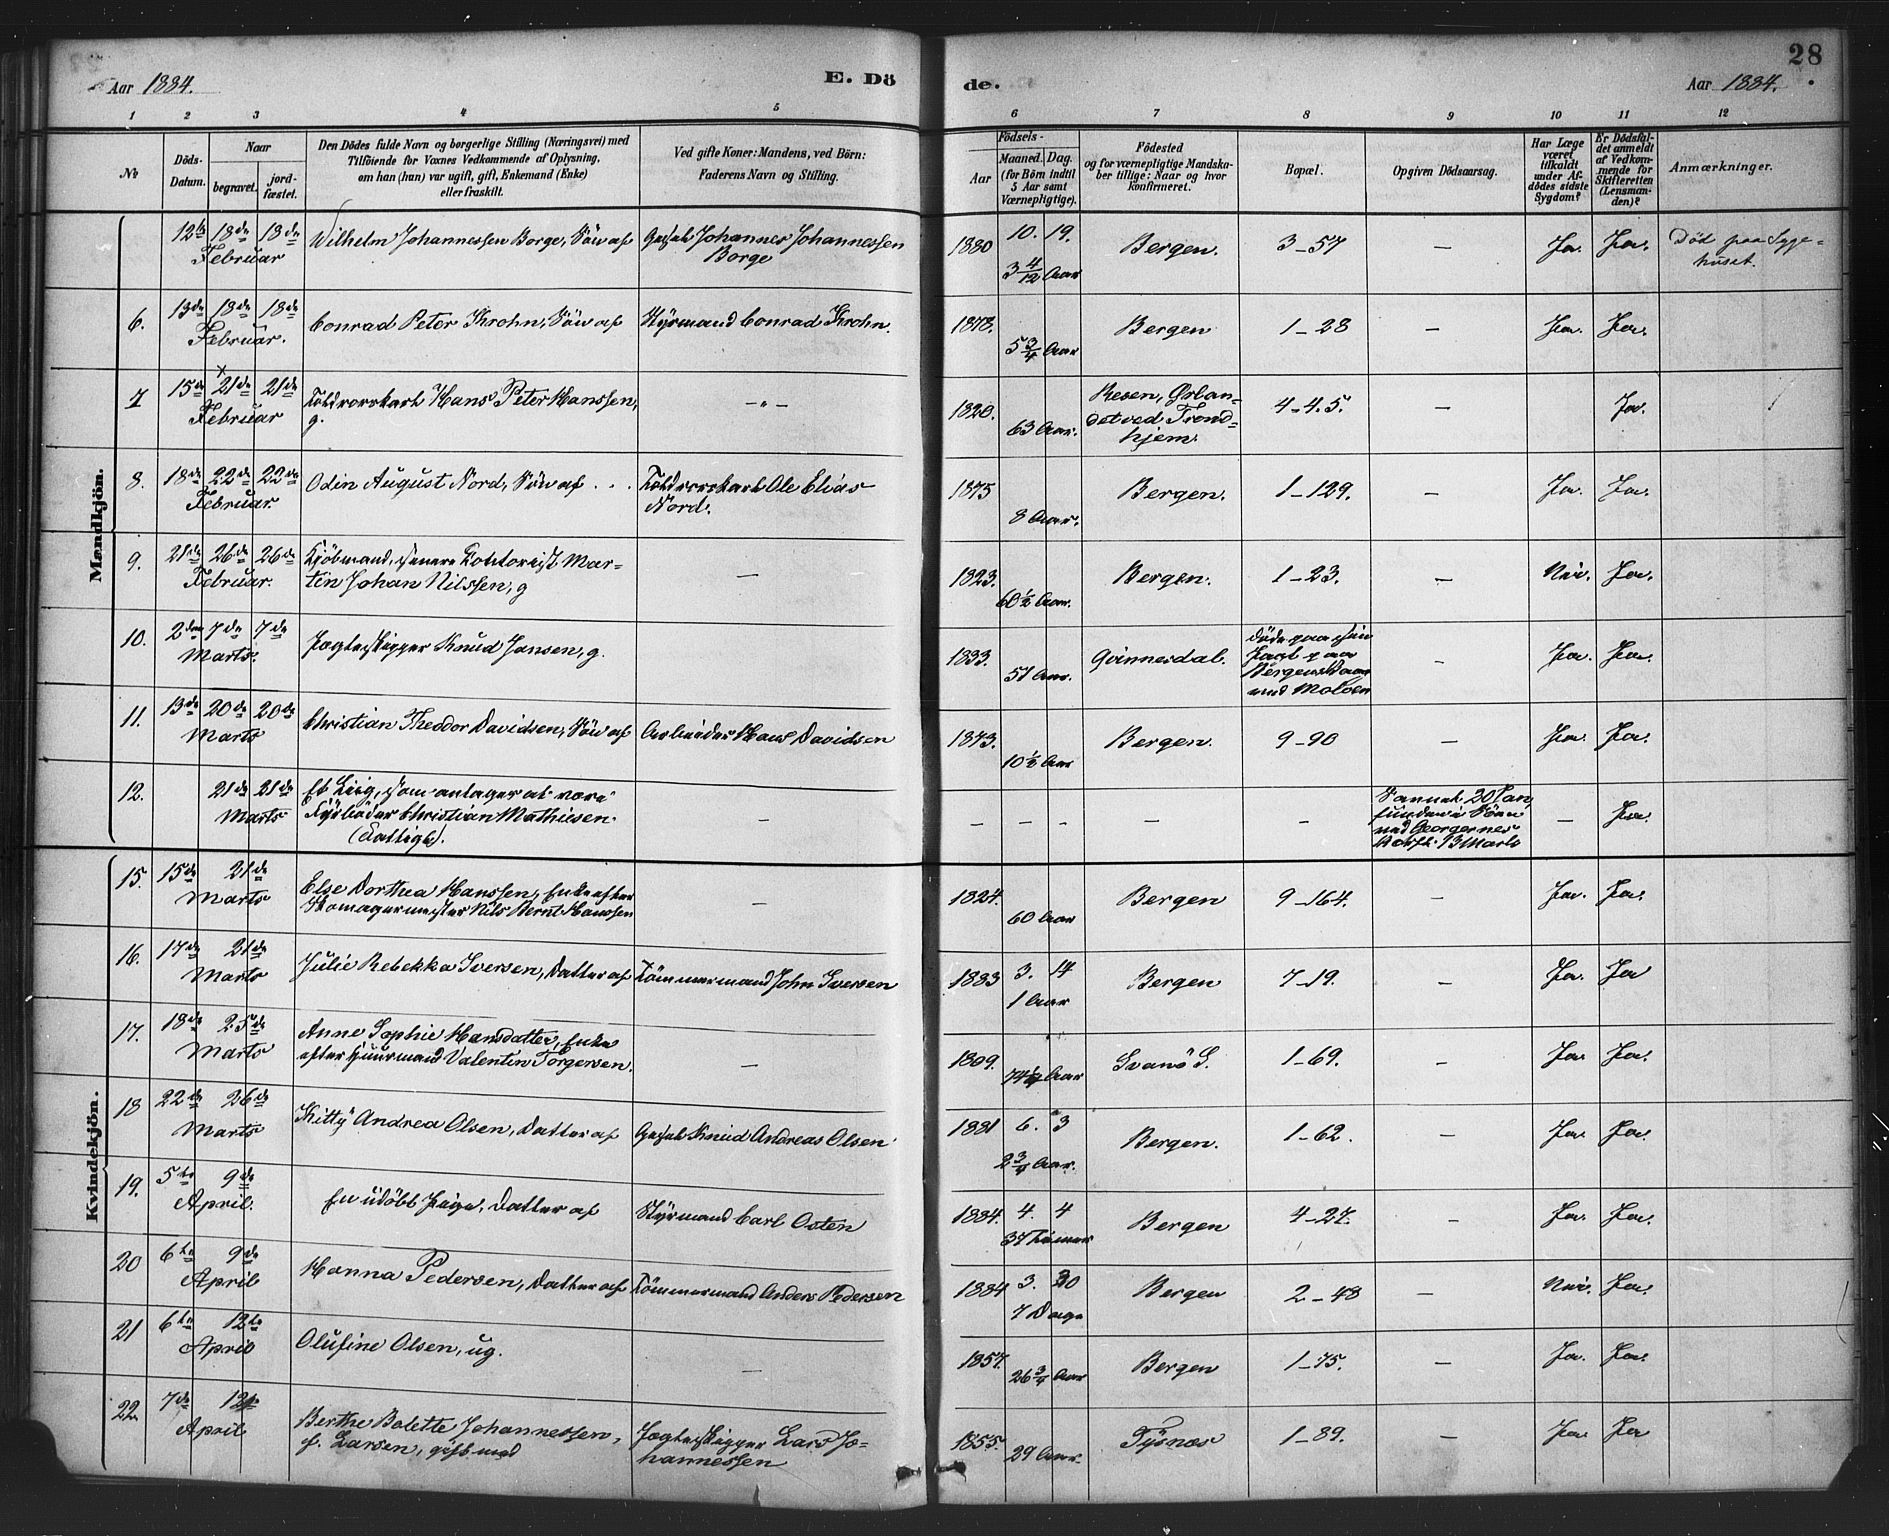 28
Aar 1884.
E. Dö
de.
Aar 1884.
1 2 3 4 5 6 7 8 9 10 11 12
No
Döds-
Datum.
Naar
begravet.
jord-
fæstet.
Den Dödes fulde Navn og borgerlige Stilling (Næringsvei) med
Tilföiende for Voxnes Vedkommende af Oplysning,
om han (hun) var ugift, gift, Enkemand (Enke)
eller fraskilt.
Ved gifte Koner: Mandens, ved Börn:
Faderens Navn og Stilling.
Födsels-
Aar
Maaned. Dag.
(for Börn indtil
5 Aar samt
Værnepligtige).
Födested
og for værnepligtige Mandska-
ber tillige: Naar og hvor
konfirmeret.
Bopæl.
Opgiven Dödsaarsag.
Har Læge
været
tilkaldt
under Af-
dödes sidste
Sygdom?
Er Dödsfal-
det anmeldt
af Vedkom-
mende for
Skifteretten
(Lensman-
den)?
Anmærkninger.
Mandkjön.
12te 18de 18de
Februar
Wilhelm Johannessen Borge, Sön af
Johannes Johannessen
Borge
1880 10. 19.
3 4/12 Aar
Bergen. 3-57 — Ja. Ja.
Död paa Syge-
huset.
6. 13de 18de 18de
Februar.
Conrad Peter Krohn, Sön af
Styrmand Conrad Krohn.
1878.
5 3/4 Aar
Bergen 1-28 — Ja. Ja.
7 15de 21de 21de
Februar
Hans Peter Hanssen,
g.
—„—
1820.
63 Aar.
Resen, Ørlan-
det ved Trond-
hjem.
4-4.5. — Ja.
8. 18de 22de 22de
Februar.
Odin August Nord, Sön af . .
Ole Elias
Nord.
1875
8 Aar.
Bergen. 1-129. — Ja. Ja.
9. 21de 26de 26de
Februar.
Kjöbmand, senere Kontorist Mar-
tin Johan Nilssen, g
—
1823.
60 1/2 Aar.
Bergen. 1-23. — Nei. Ja.
10. 2den 7de 7de
Marts.
Jagteskipper Knud Jansen, g.
1833.
51 Aar.
Qvinnesdal.
döde paa sin
Jagt paa
— Ja. Ja.
11. 13de 20de 20de
Marts
Christian Theodor Davidsen, Sön af
Arbeider Hans Davidsen
1873.
10 1/2 Aar
Bergen. 9-90 — Ja. Ja.
12. 21de 21de
Marts
Et Liig, som antages at være
Fyrböder Christian Mathiesen.
(Fattigl.)
—
— — — — —
Savnet 20 Jan,
funden i Söen
ved Georgernes
13 Marts
— Ja.
Kvindekjön.
15. 15de 21de
Marts
Else Dorthea Hanssen, Enke efter
Skomagermester Nils Bernt Hanssen
—
1824.
60 Aar
Bergen 9-164. — Ja. Ja.
16. 17de 21de
Marts
Julie Rebekka Iversen, Datter af
Tömmermand John Iversen
1883 3. 14
1 Aar
Bergen 7-19. — Ja. Ja
17. 18de 25de
Marts
Anne Sophie Hansdatter, Enke
efter Valentin Torgersen.
—
1809.
Aar
Svanö S. 1-69. — Ja. Ja.
18 22de 26de
Marts
Kitty Andrea Olsen, Datter af
Knud Andreas Olsen
1881 6. 3
2 3/4 Aar.
Bergen. 1-62. — Ja. Ja.
19. 5te 9de
April.
En udöbt Pige, Datter af
Styrmand Carl Osten
1884. 4. 4
37 Timer
Bergen 4-27. — Ja. Ja.
20 6te 9de
April
Hanna Pedersen, Datter af
Tömmermand Anders Pedersen
1884 3. 30
7 Dage
Bergen 2-48 — Nei. Ja.
21 6te 12te
April
Olufine Olsen, ug.
—
1857.
26 3/4 Aar
Bergen 1-75. — Ja. Ja.
22. 7de 12te
April
Berthe Bolette Johannessen,
f. Larsen, gift med
Jagteskipper Lars Jo-
hannessen
1855.
29 Aar.
Tysnæs 1-89. — Ja. Ja